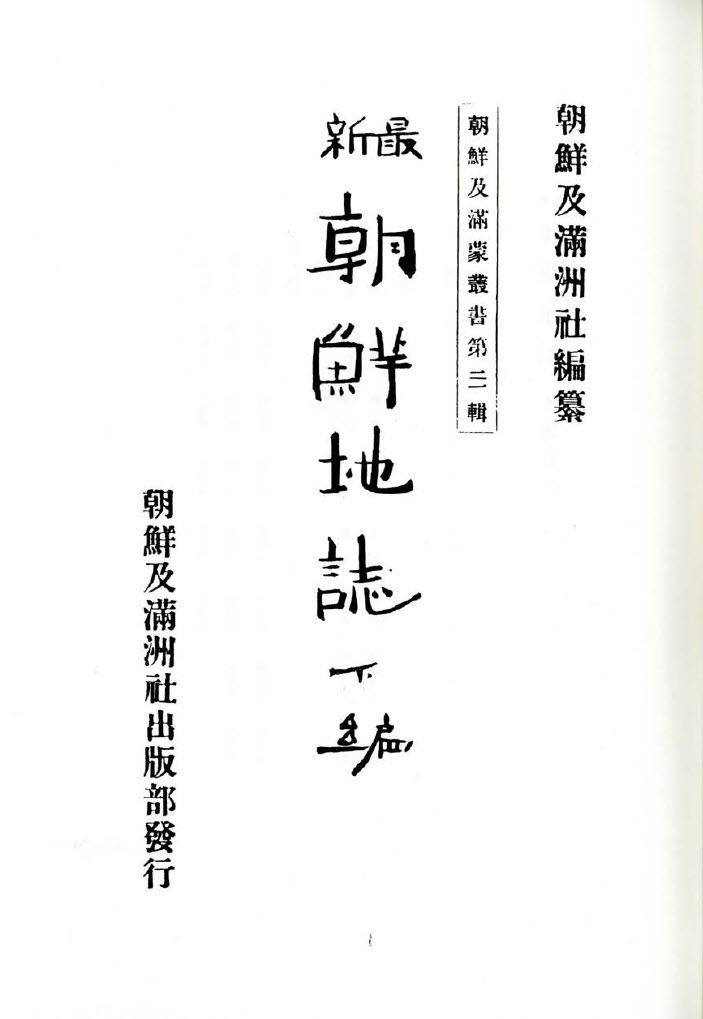 朝鮮及滿洲社編纂
朝鮮及滿蒙叢書第三輯
最新
朝鮮地誌下編
朝鮮及滿洲社出版部發行